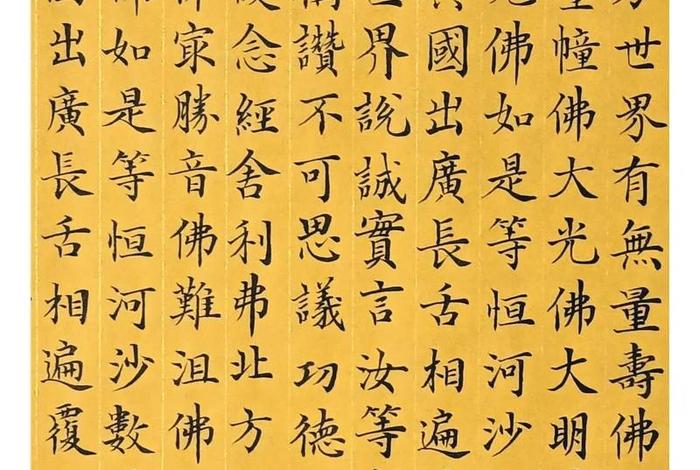 方世界有無量壽佛
幢佛大光佛大明
光佛如是等恒河沙
其國出廣長舌相遍
世界說誠實言汝等
稱讚不可思議功德
護念經舍利弗北方
㝡勝音佛難沮佛
佛如是等恒河沙數
出廣長舌相遍覆